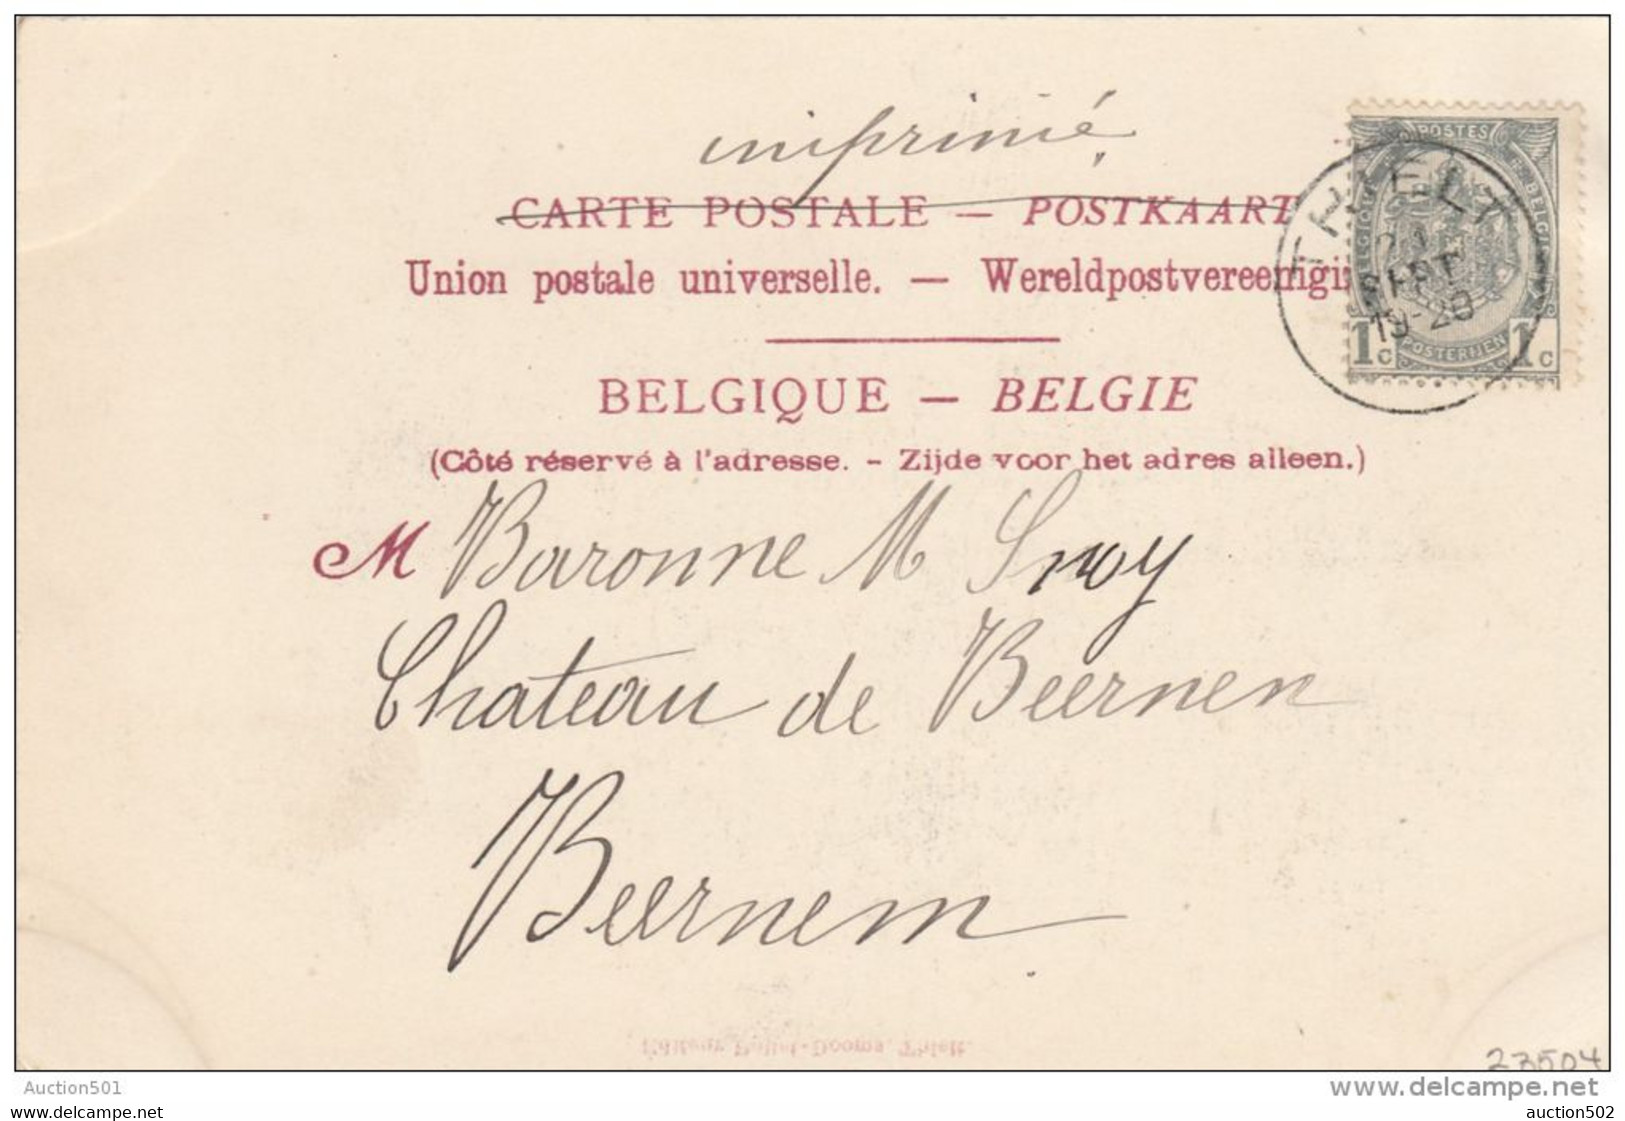 imprimé
CARTE POSTALE — POSTKAART
Union postale universelle. — Wereldpostvereeniging
BELGIQUE — BELGIE
(Côté réservé à l'adresse. - Zijde voor het adres alleen.)
M Baronne M Snoy
Chateau de Beernem
Beernem
POSTES
BELGIQUE
BELGIE
THIELT
21
SEPT
19-20
1c POSTERIJEN 1c
Editeur Pollet-Dooms, Thielt.
23504
Auction501
www.delcampe.net
auction501
auction502